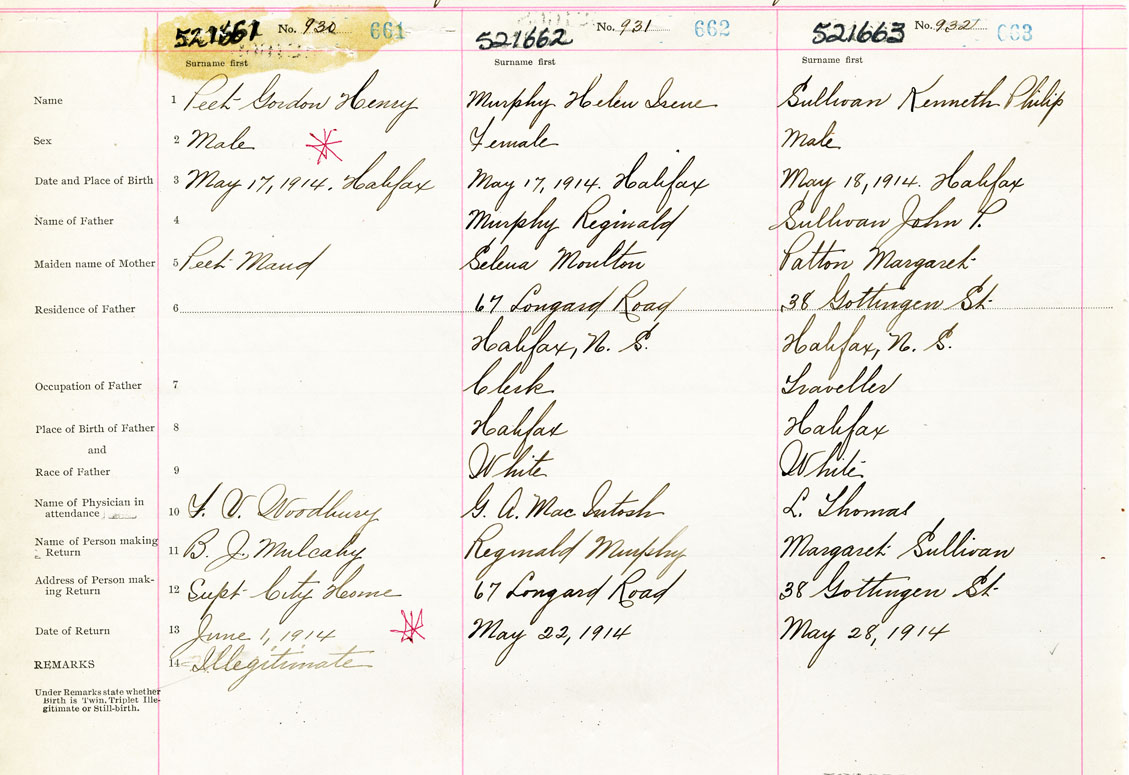 521661 No. 930 661 521662 No. 931 662 521663 No. 932 663
Surname first Surname first Surname first
Name 1 Peet Gordon Henry Murphy Helen Irene Sullivan Kenneth Philip
Sex 2 Male Female Male
Date and Place of Birth 3 May 17, 1914. Halifax May 17, 1914. Halifax May 18, 1914. Halifax
Name of Father 4 Murphy Reginald Sullivan John P.
Maiden name of Mother 5 Peet Maud Selena Moulton Patton Margaret
Residence of Father 6 67 Longard Road 38 Gottingen St
Halifax, N. S. Halifax, N. S.
Occupation of Father 7 Clerk Traveller
Place of Birth of Father 8 Halifax Halifax
and
Race of Father 9 White White
Name of Physician in
attendance 10 F. V. Woodbury G. A. Mac Intosh L. Thomas
Name of Person making
Return 11 B. J. Mulcahy Reginald Murphy Margaret Sullivan
Address of Person mak-
ing Return 12 Supt City Home 67 Longard Road 38 Gottingen St
Date of Return 13 June 1, 1914 May 22, 1914 May 28, 1914
REMARKS 14 Illegitimate
Under Remarks state whether
Birth is Twin, Triplet Ille-
gitimate or Still-birth.